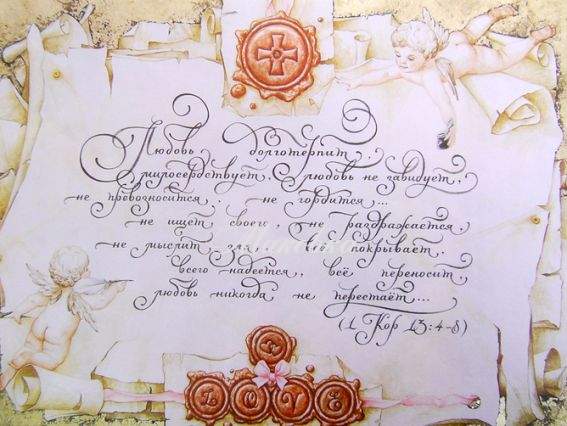 Любовь долготерпит,
милосердствует, любовь не завидует,
не превозносится, не гордится...
не ищет своего, не раздражается,
не мыслит зла, всё покрывает,
всего надеется, всё переносит,
любовь никогда не перестаёт...
(1 Кор 13:4-8)
LOVE